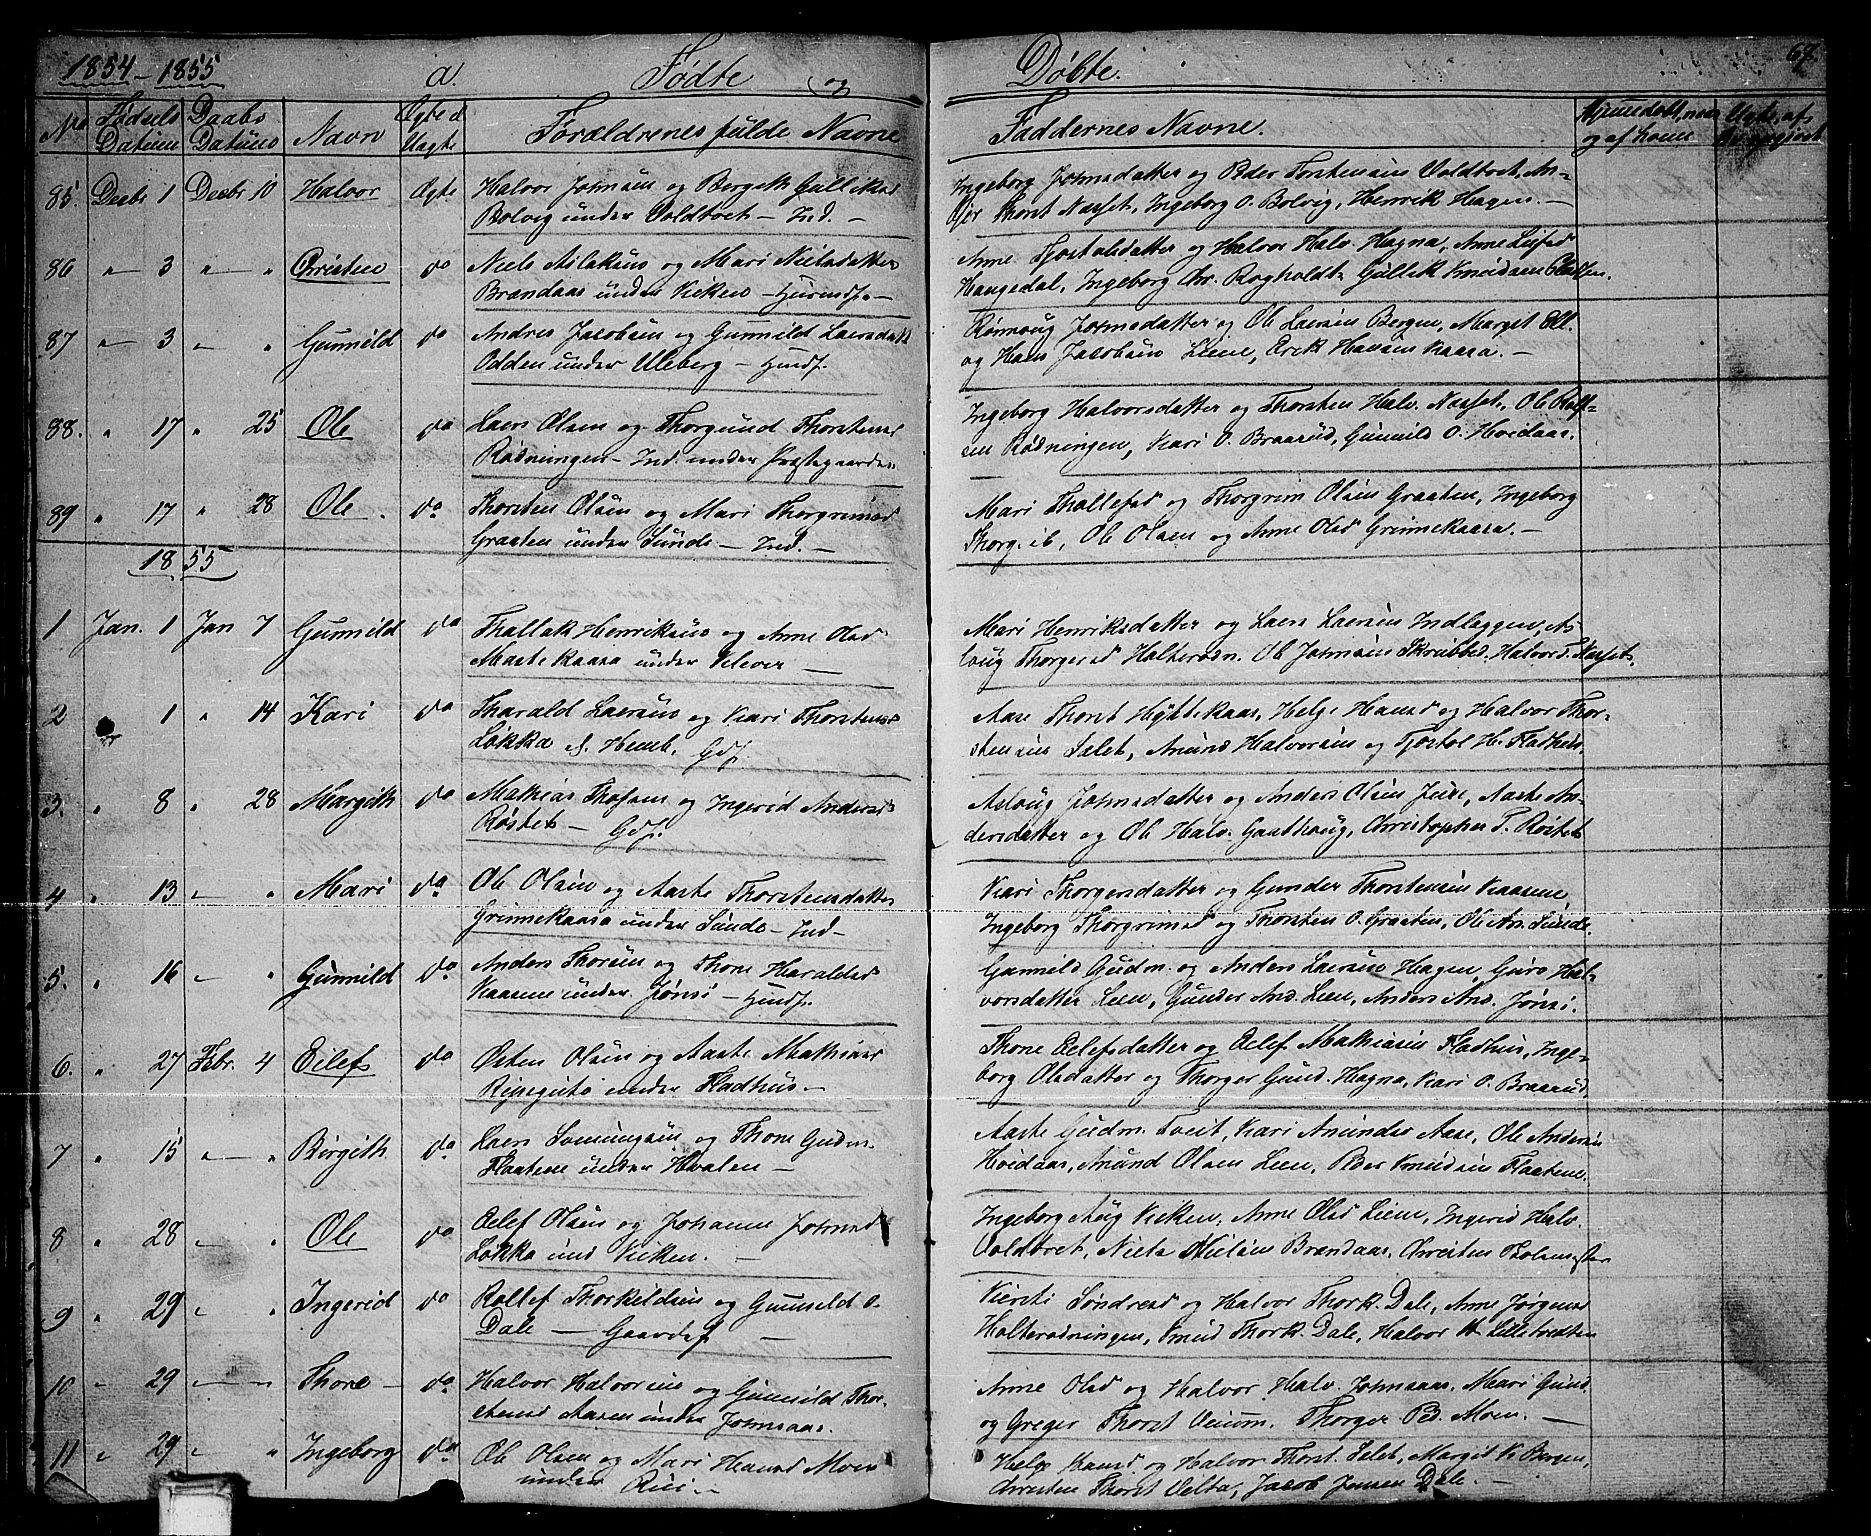 1854-1855 a. Fødte og Døbte. 67.
No Fødsels Datum Daabs Datum Navn Ægte el. Uægte Forældrenes fulde Navne Faddernes Navne.
85. Decbr 1 Decbr 10 Halvor Ægte Halvor Johnsen og Bergith Gulliksd
Bolvig under Voldtvet - Ind. -
Ingeborg Johnsdatter og Peder Torstensen Voldtvet, An-
Thorst Næset, Ingeborg O. Bolvig, Henrik Hagen. -
86 " 3 " " Christen do Niels Aslaksen og Mari Nielsdatter
Brændaas under Vieken - Huusmf. -
Anne Tjostolsdatter og Halvor Halv. Hagna, Anne Leifsd
Haugedal, Ingeborg Chr. Rogholdt, Gullik Knudsen
87 " 3 " " Gunnild do Andres Jacobsen og Gunnild Laersdatt
Odden under Uleberg - Huusmf.
Rønnoug Johnsdatter og Ole Laersen Bergen, Marget Ell.
og Hans Jacobsen Leine, Erik Hansen Kaasa. -
88. " 17 " 25 Ole do Laers Olsen og Thorgund Thorstensd
Rødningen - Ind. under Præstegaarden
Ingeborg Halvorsdatter og Thorsten Halv. Næset, Ole
sen Rødningen, Kari O. Braarud, Gunnild O. Hoidaas.
89 " 17 " 28 Ole do Thorsten Olsen og Mari Thorgrimsd
Graaten under Sunde - Ind. -
Mari Thallefsd og Thorgrim Olsen Graaten, Ingeborg
Thorg. ib, Ole Olsen og Anne Olsd Grinnekaasa. -
1855
1 Jan. 1 Jan 7 Gunnild do Thallak Henriksen og Anne Olsd
Mastekaasa under Klever -
Mari Henriksdatter og Laers Laersen Indlæggen, As-
loug Thorgersd Halterødn. Ole Johnsen Skrubod. Halvor T. Næset.
2 1 " 14 Kari do Tharald Laersen og Kari Thorstensd
Løkka u. Hemb. Gdf.
Aase Thorst Hyttekaas, Helge Hansd og Halvor Thor-
stensen Salet, Anund Halvorsen og Tjostol H. Fladhus.
3. " 8 " 28 Margith do Mathias Thofsen og Ingerid Andersd
Røstet - Gdf.
Asloug Johnsdatter og Anders Olsen Juve, Aaste An-
dersdatter og Ole Halv. Gaathoug, Christopher T. Røstet
4 " 13 " " Mari do Ole Olsen og Aaste Thorstensdatter
Grinnekaasa under Sunde - Ind -
Kari Thorgersdatter og Gunder Thorstensen Kaasene
Ingeborg Thorgrimsd og Thorsten O. Graaten, Ole An. Sunde.
5. " 16 " " Gunnild do Anders Thorsen og Thone Haraldsd
Kaasene under Jønsi - Huusmf.
Gunnild Gudm. og Anders Laersen Hagen, Guro Hal-
vorsdatter Leen, Gunder And. Leen, Anders And. Jønsi.
6. " 27 Febr. 4 Eilef do Østen Olsen og Aaste Mathiasd
under Fladhus -
Thone Eilefsdatter og Eilef Mathiasen Fladhus, Inge-
borg Olsdatter og Thorger Gund. Hagna, Kari O. Braarud,
7 " 15 " " Birgith do Laers Sveinungsen og Thone Gudm.
Flaatene under Hvalen -
Aaste Gudm. Tveit, Kari Anunds Aase, Ole Andersen
Hoidaas, Anund Olsen Leen, Peder Knudsen Flaatene.
8 " 28 " " Ole do Eilef Olsen og Johanne Johnsd
Løkka und Vieken. -
Ingeborg Aug Vieken, Anne Olsd Leene, Ingerid Halv.
Voldtvet, Niels Nielsen Brændaas, Christen
9 " 29 " " Ingerid do Rollef Thorkildsen og Gunnild O.
Dale - Gaardsf. -
Kiersti Søndresd og Halvor Thork. Dale, Anne Jørgensd
Halterødningen, Knud Thork. Dale, Halvor K. Lilletveten
10 " 29 " " Thore do Halvor Halvorsen og Gunnild Thor-
stensd Aasen under Johnsaas.
Anne Olsd og Halvor Halv. Johnsaas, Mari Gund.
og Greger Thorst Veum. Thorger Pd. Moen. -
11 " 29 " " Ingeborg do Ole Olsen og Mari Hansd Moen
under Rui. -
Helge Hansd og Halvor Thorst. Salet, Margit K. Bergen,
Christen Thorst Velta, Jacob Jensen Dale. -